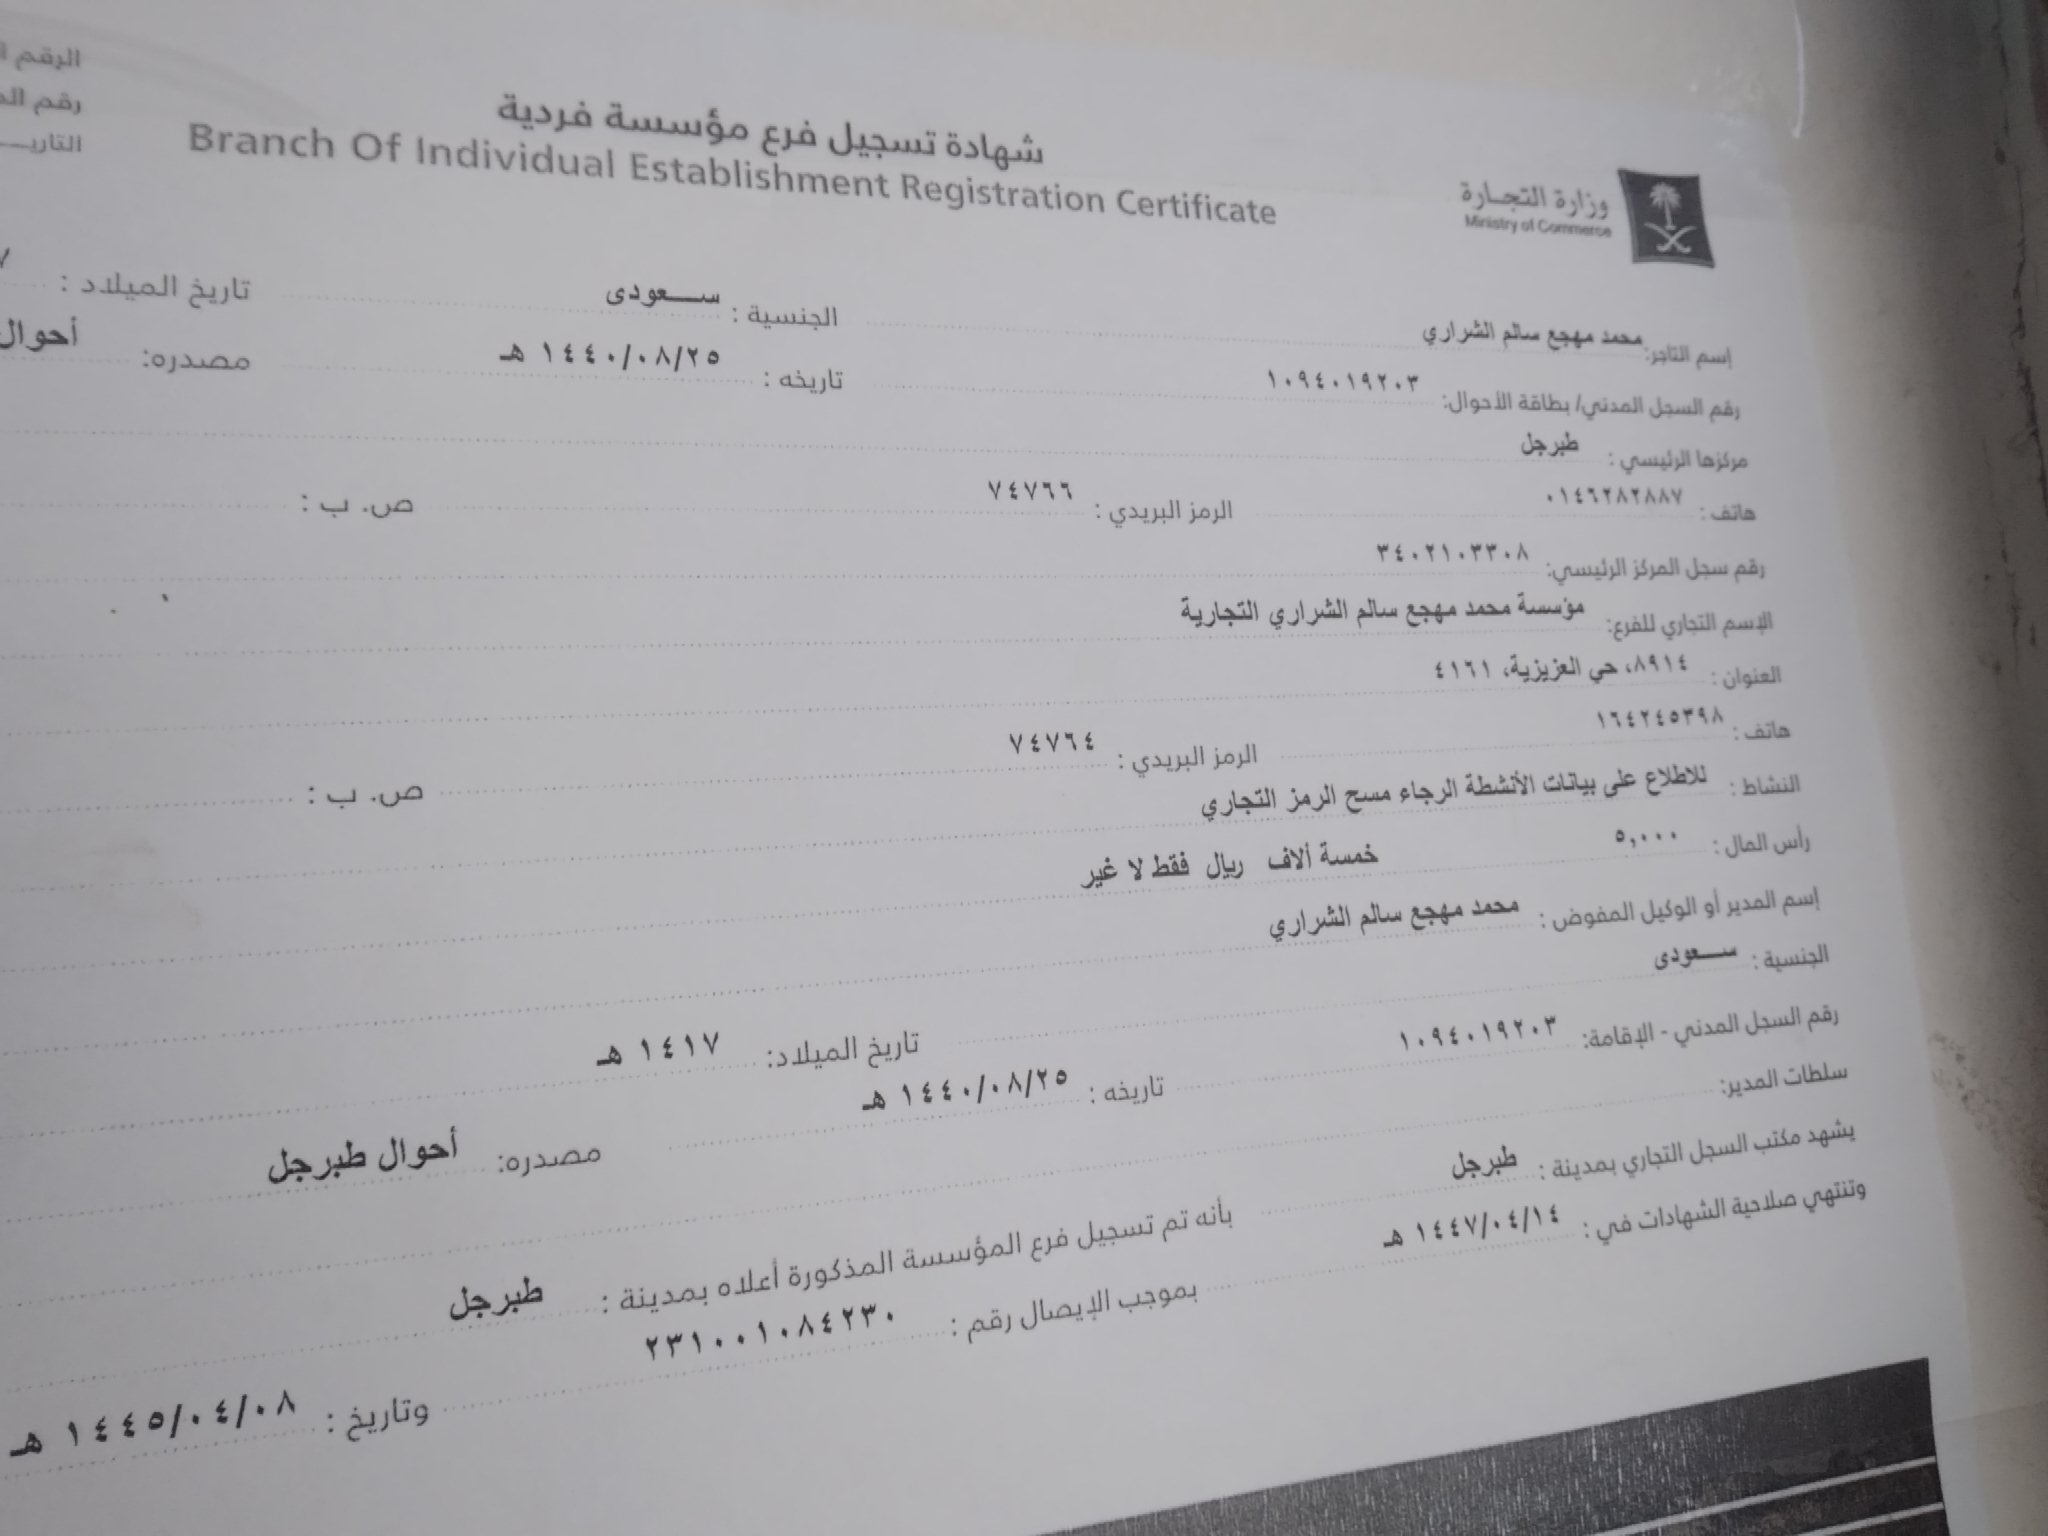 الرقم
رقم
وزارة التجارة
Ministry of Commerce
شهادة تسجيل فرع مؤسسة فردية
Branch Of Individual Establishment Registration Certificate
إسم التاجر: محمد مهجع سالم الشراري الجنسية : سعودى تاريخ الميلاد :
رقم السجل المدني/ بطاقة الأحوال: ١٠٩٤٠١٩٢٠٣ تاريخه : ١٤٤٠/٠٨/٢٥ هـ مصدره: أحوال
مركزها الرئيسي : طبرجل
هاتف : ٠١٤٦٢٨٢٨٨٧ الرمز البريدي : ٧٤٧٦٦ ص. ب :
رقم سجل المركز الرئيسي: ٣٤٠٢١٠٣٣٠٨
الإسم التجاري للفرع: مؤسسة محمد مهجع سالم الشراري التجارية
العنوان : ٨٩١٤، حي العزيزية، ٤١٦١
هاتف : ١٦٤٢٤٥٣٩٨ الرمز البريدي : ٧٤٧٦٤ ص. ب :
النشاط : للاطلاع على بيانات الأنشطة الرجاء مسح الرمز التجاري
رأس المال : ٥,٠٠٠ خمسة ألاف ريال فقط لا غير
إسم المدير أو الوكيل المفوض : محمد مهجع سالم الشراري
الجنسية : سعودى تاريخ الميلاد: ١٤١٧ هـ
رقم السجل المدني - الإقامة: ١٠٩٤٠١٩٢٠٣ تاريخه : ١٤٤٠/٠٨/٢٥ هـ مصدره: أحوال طبرجل
سلطات المدير:
يشهد مكتب السجل التجاري بمدينة : طبرجل بأنه تم تسجيل فرع المؤسسة المذكورة أعلاه بمدينة : طبرجل
وتنتهي صلاحية الشهادات في : ١٤٤٧/٠٤/١٤ هـ بموجب الإيصال رقم : ٢٣١٠٠١٠٨٤٢٣٠ وتاريخ : ١٤٤٥/٠٤/٠٨ هـ